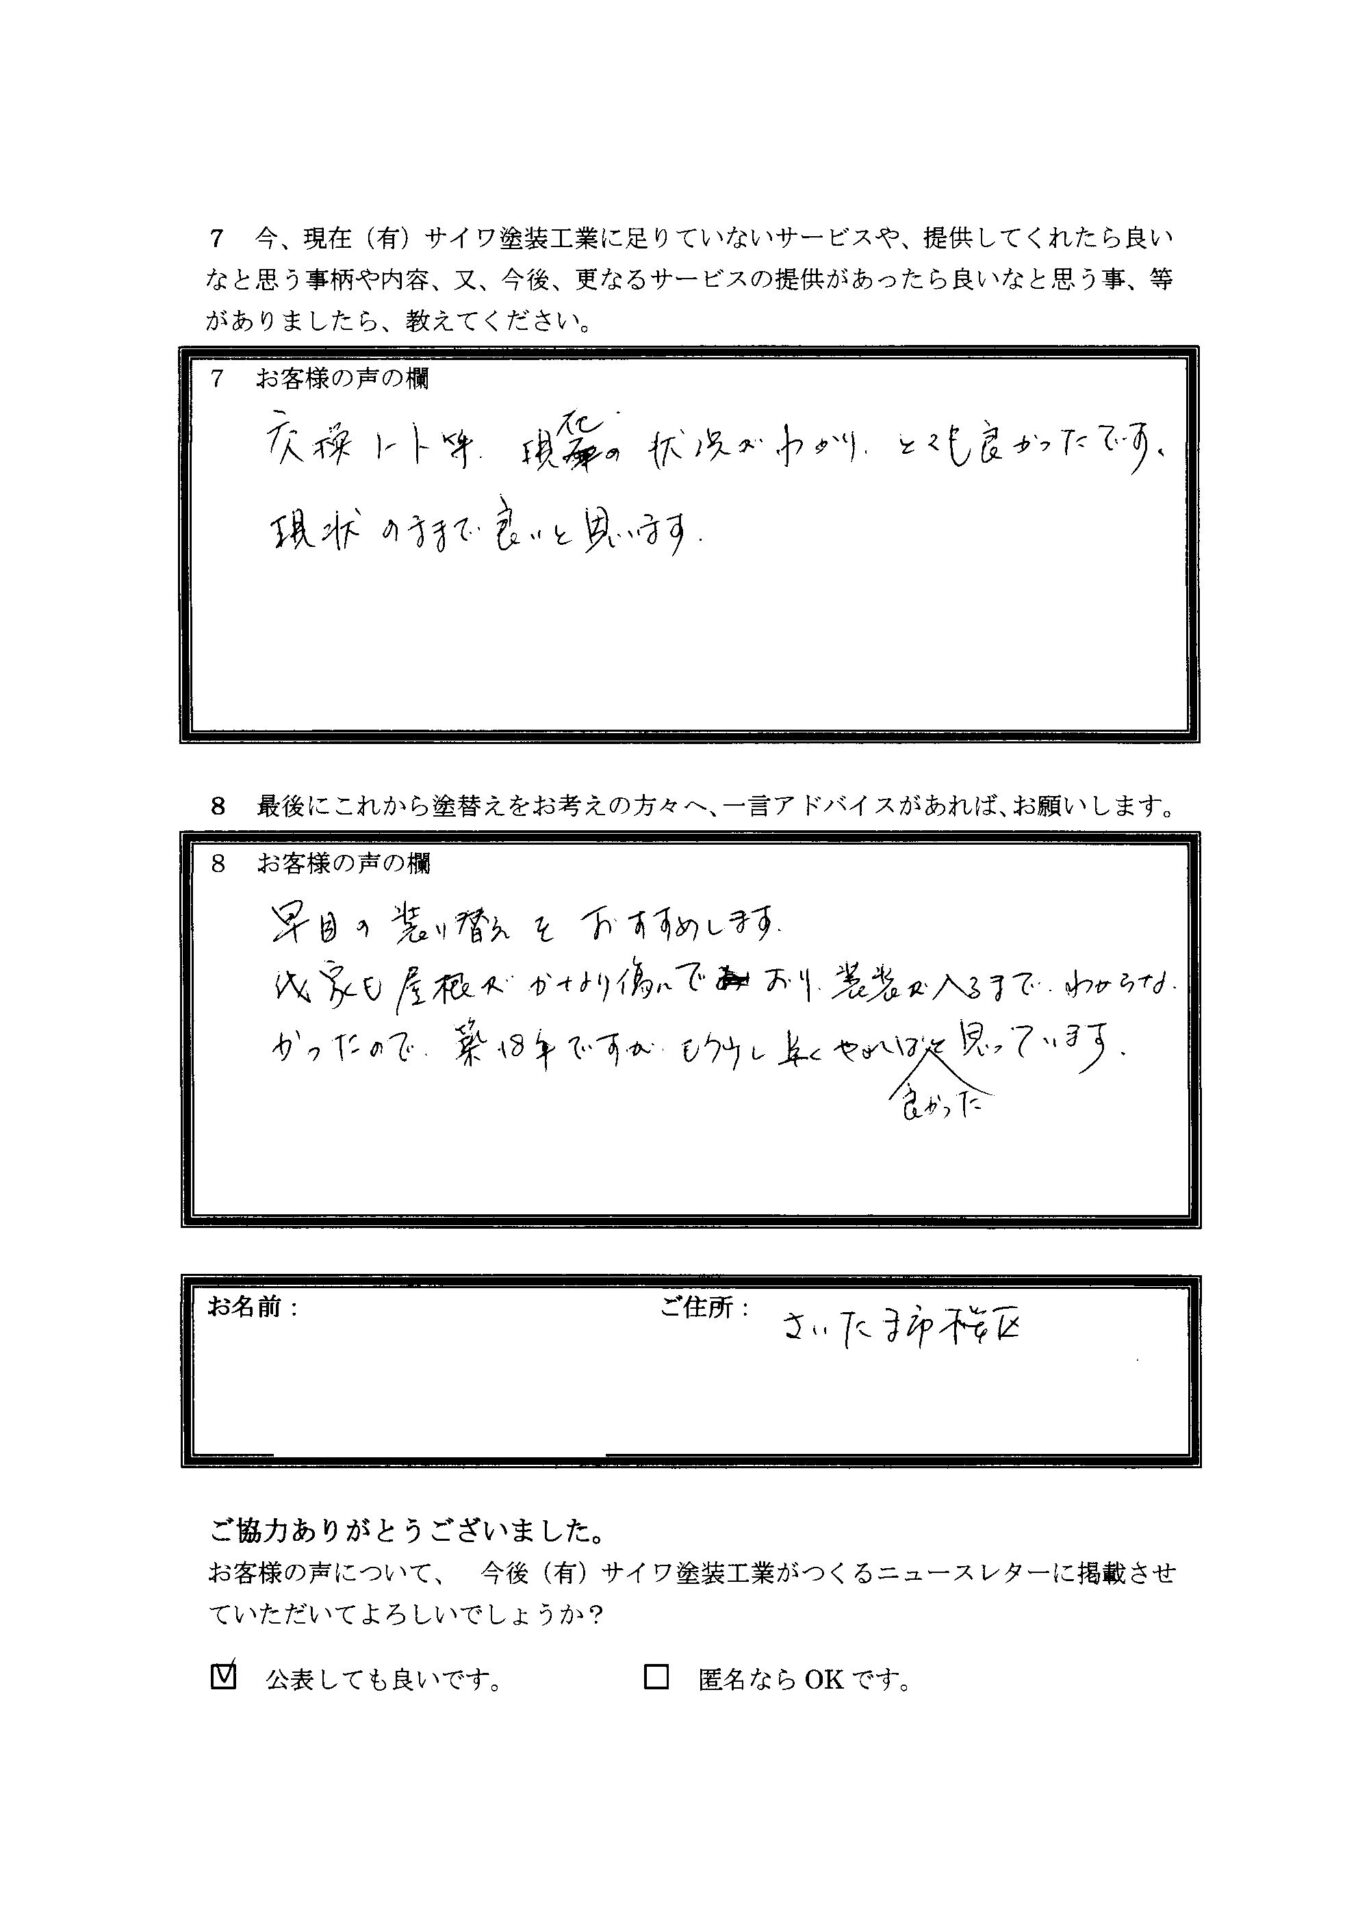 7 今、現在（有）サイワ塗装工業に足りていないサービスや、提供してくれたら良い
なと思う事柄や内容、又、今後、更なるサービスの提供があったら良いなと思う事、等
がありましたら、教えてください。
7 お客様の声の欄
交換ノート等、現在の状況がわかり、とても良かったです。
現状のままで良いと思います。
8 最後にこれから塗替えをお考えの方々へ、一言アドバイスがあれば、お願いします。
8 お客様の声の欄
早目の装り替えをおすすめします。
我家も屋根がかなり傷んでおり、装装が入るまで、わからな
かったので、築18年ですが、もう少し早くやれば良かったと思っています。
お名前： ご住所： さいたま市桜区
ご協力ありがとうございました。
お客様の声について、 今後（有）サイワ塗装工業がつくるニュースレターに掲載させ
ていただいてよろしいでしょうか？
☑ 公表しても良いです。 □ 匿名なら OK です。